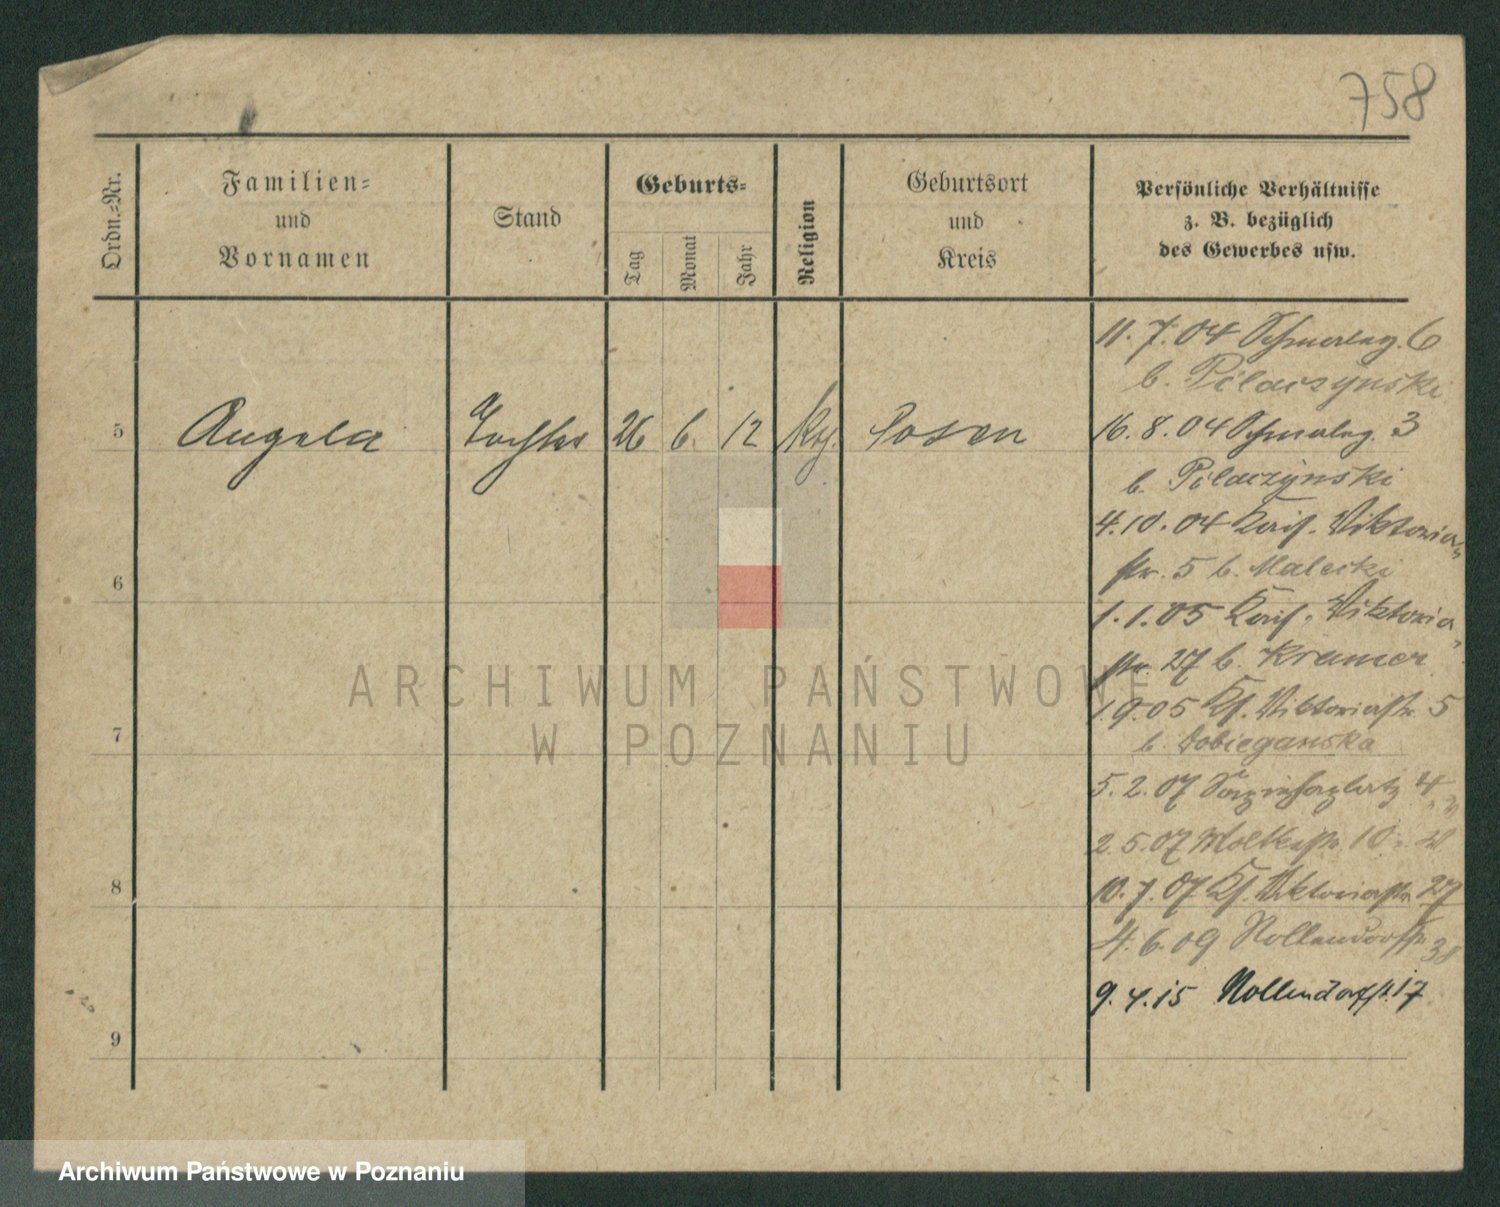 758
Ordn.-Nr.
Familien-
und
Vornamen
Stand
Geburts-
Tag
Monat
Jahr
Religion
Geburtsort
und
Kreis
Persönliche Verhältnisse
z. B. bezüglich
des Gewerbes usw.
11. 7. 04 6
b. Pilaczynski
5 Angela Tochter 26 6. 12 kth. Posen
16. 8. 04 3
b. Pilaczynski
4. 10. 04 Kais. Viktoria-
str. 5 b. Malecki
6
1. 1. 05 Kais. Viktoria-
str. 27 b. Kramer
1. 9. 05 Ks. Viktoriastr. 5
7
5. 2. 07 4
2. 5. 07 Moltkestr. 10
8
10. 7. 07 Ks. Viktoriastr. 27
4. 6. 09 Nollendorfstr. 38
9. 4. 15 Nollendorfst. 17
9
ARCHIWUM PAŃSTWOWE
W POZNANIU
Archiwum Państwowe w Poznaniu